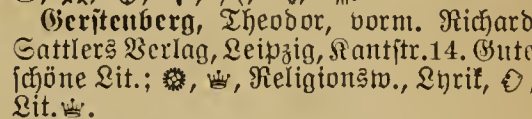 Gerstenberg, Theodor, vorm. Richard
Sattlers Verlag, Leipzig, Kantstr. 14. Gute
schöne Lit.; Religionsw., Lyrik,
Lit.